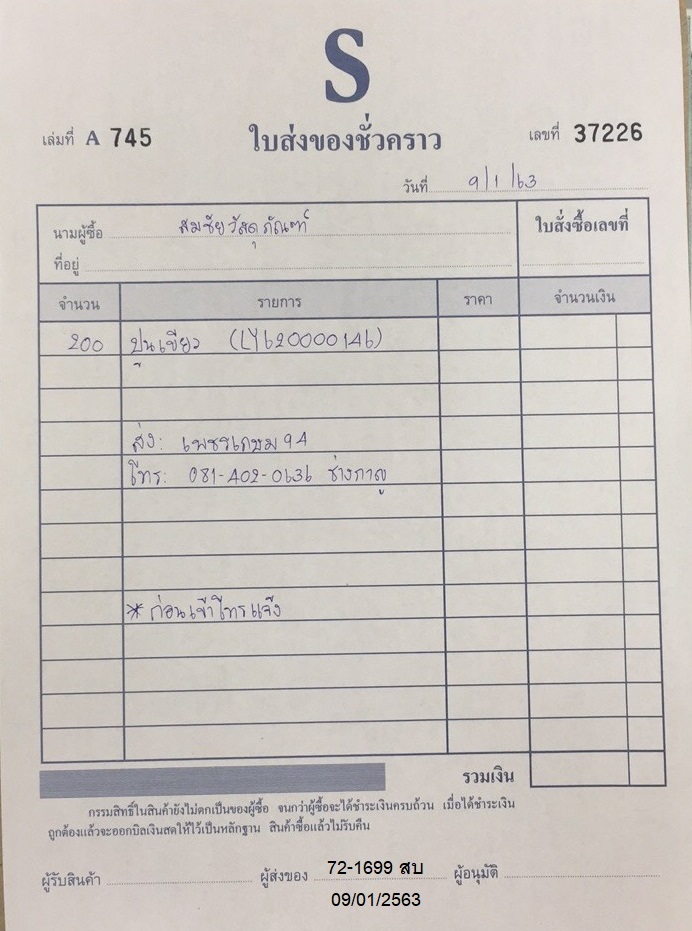 S
เล่มที่ A 745 ใบส่งของชั่วคราว เลขที่ 37226
วันที่ 9/1/63
นามผู้ซื้อ สมชัยวัสดุภัณฑ์ ใบสั่งซื้อเลขที่
ที่อยู่
จำนวน รายการ ราคา จำนวนเงิน
200 ปูนเขียว (LY620000146)
ส่ง: เพชรเกษม 94
โทร: 081-402-0636 ช่างกาญ
*ก่อนเข้าโทรแจ้ง
รวมเงิน
กรรมสิทธิ์ในสินค้ายังไม่ตกเป็นของผู้ซื้อ จนกว่าผู้ซื้อจะได้ชำระเงินครบถ้วน เมื่อได้ชำระเงิน
ถูกต้องแล้วจะออกบิลเงินสดให้ไว้เป็นหลักฐาน สินค้าซื้อแล้วไม่รับคืน
ผู้รับสินค้า ผู้ส่งของ 72-1699 สบ ผู้อนุมัติ
09/01/2563